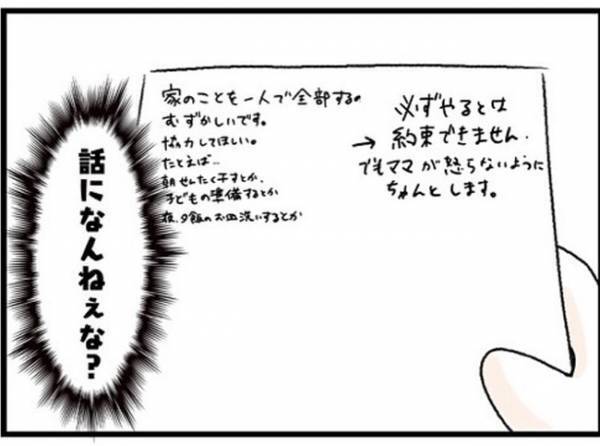 家のことを一人で全部するの
むずかしいです。
協力してほしい。
たとえば…
朝せんたく干すとか、
子どもの準備するとか
夜、夕飯のお皿洗いするとか
→ 必ずやるとは
約束できません.
でもママが怒らないように
ちゃんとします。
話になんねぇな?